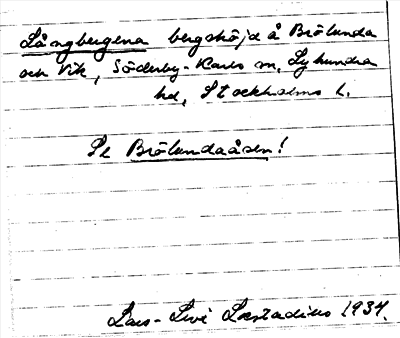 Långbergena bergshöjd å Brölunda
och Vik, Söderby-Karls sn, Lyhundra
hd, Stockholms l.
Se Brölundaåsen!
Lars-Levi Læstadius 1934.